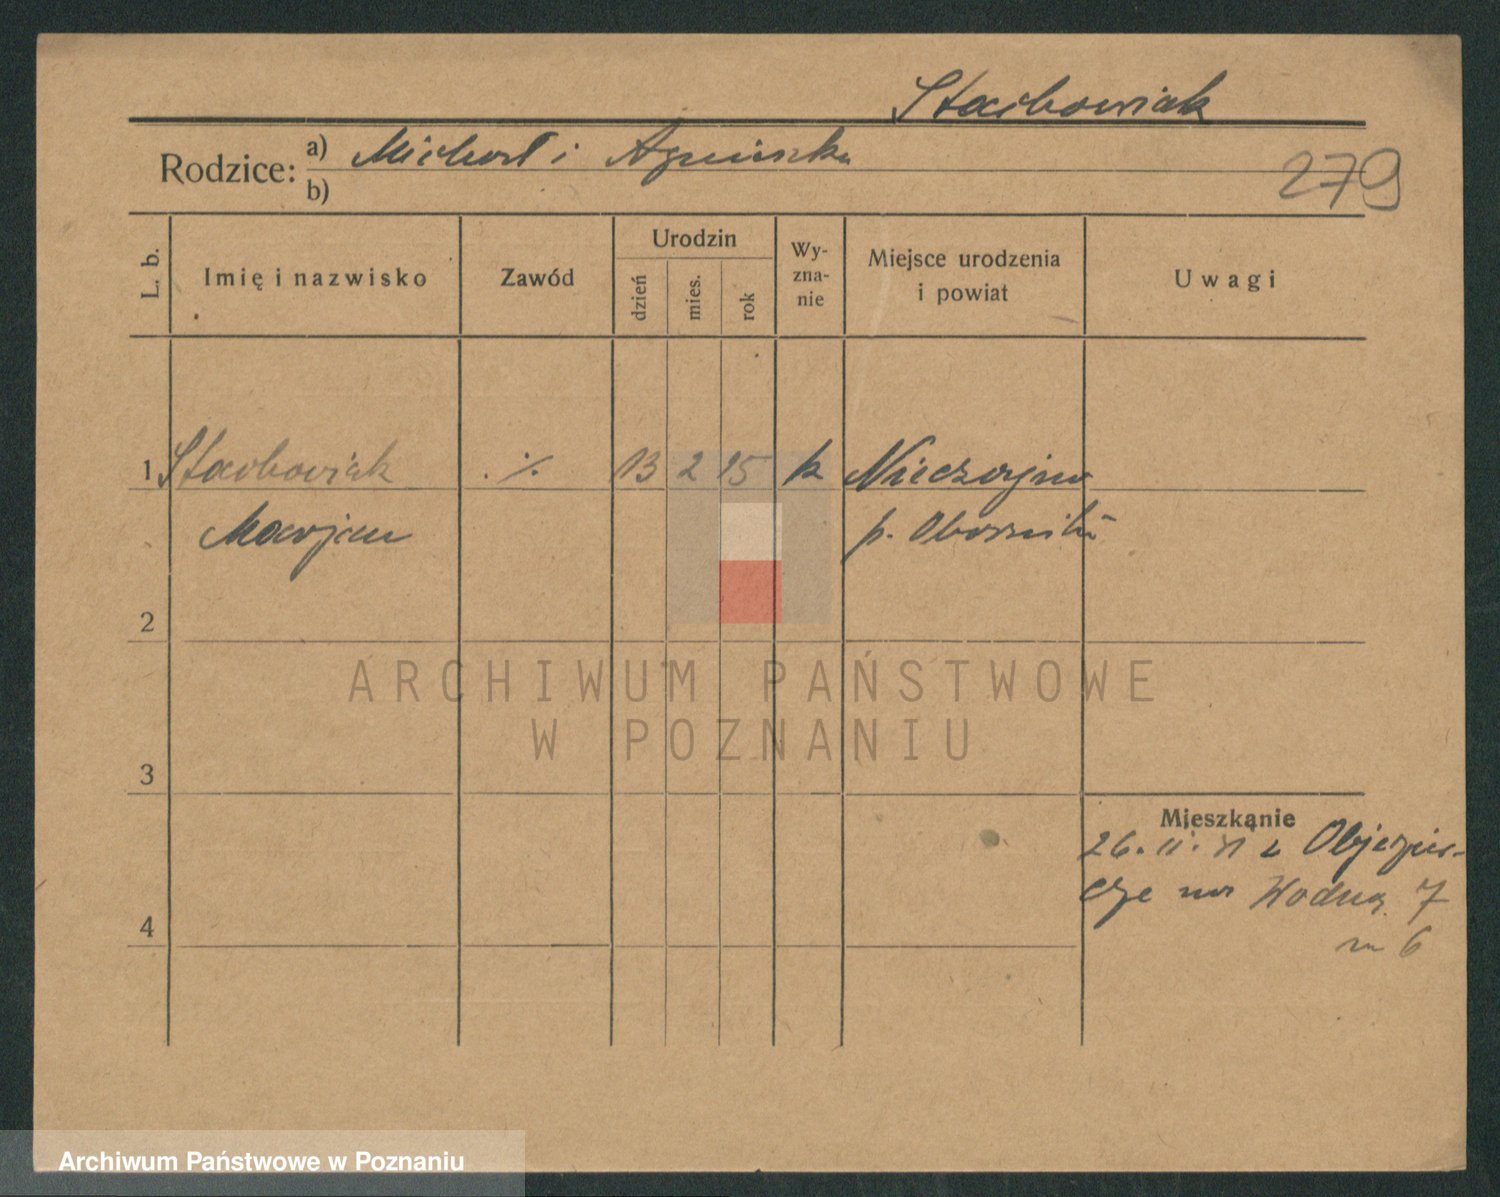 Stachowiak
Rodzice: a) Michał i Agnieszka
b)
279
L. b.
Imię i nazwisko
Zawód
Urodzin
dzień
mies.
rok
Wy-
zna-
nie
Miejsce urodzenia
i powiat
Uwagi
1 Stachowiak ·/· 13 2 15 k Nieczajna
Marjan p. Oborniki
2
3
4
Mieszkanie
26. II. z Objezie-
rze na Wodną 7
m 6
ARCHIWUM PAŃSTWOWE
W POZNANIU
Archiwum Państwowe w Poznaniu